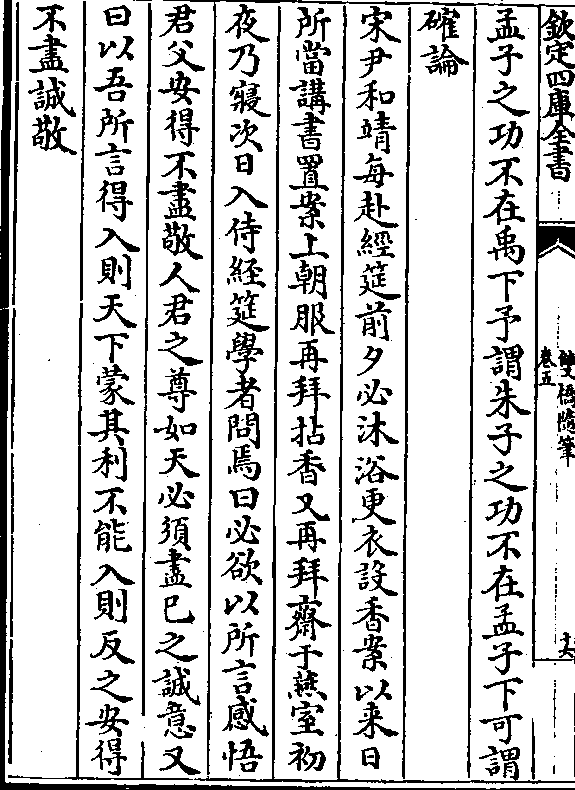 欽定四庫全書
雙橋隨筆
卷五
十六
孟子之功不在禹下予謂朱子之功不在孟子下可謂
確論
宋尹和靖每赴經筵前夕必沐浴更衣設香案以来日
所當講書置案上朝服再拜拈香又再拜齋于燕室初
夜乃寢次日入侍經筵學者問焉曰必欲以所言感悟
君父安得不盡敬人君之尊如天必須盡己之誠意又
曰以吾所言得入則天下蒙其利不能入則反之安得
不盡誠敬